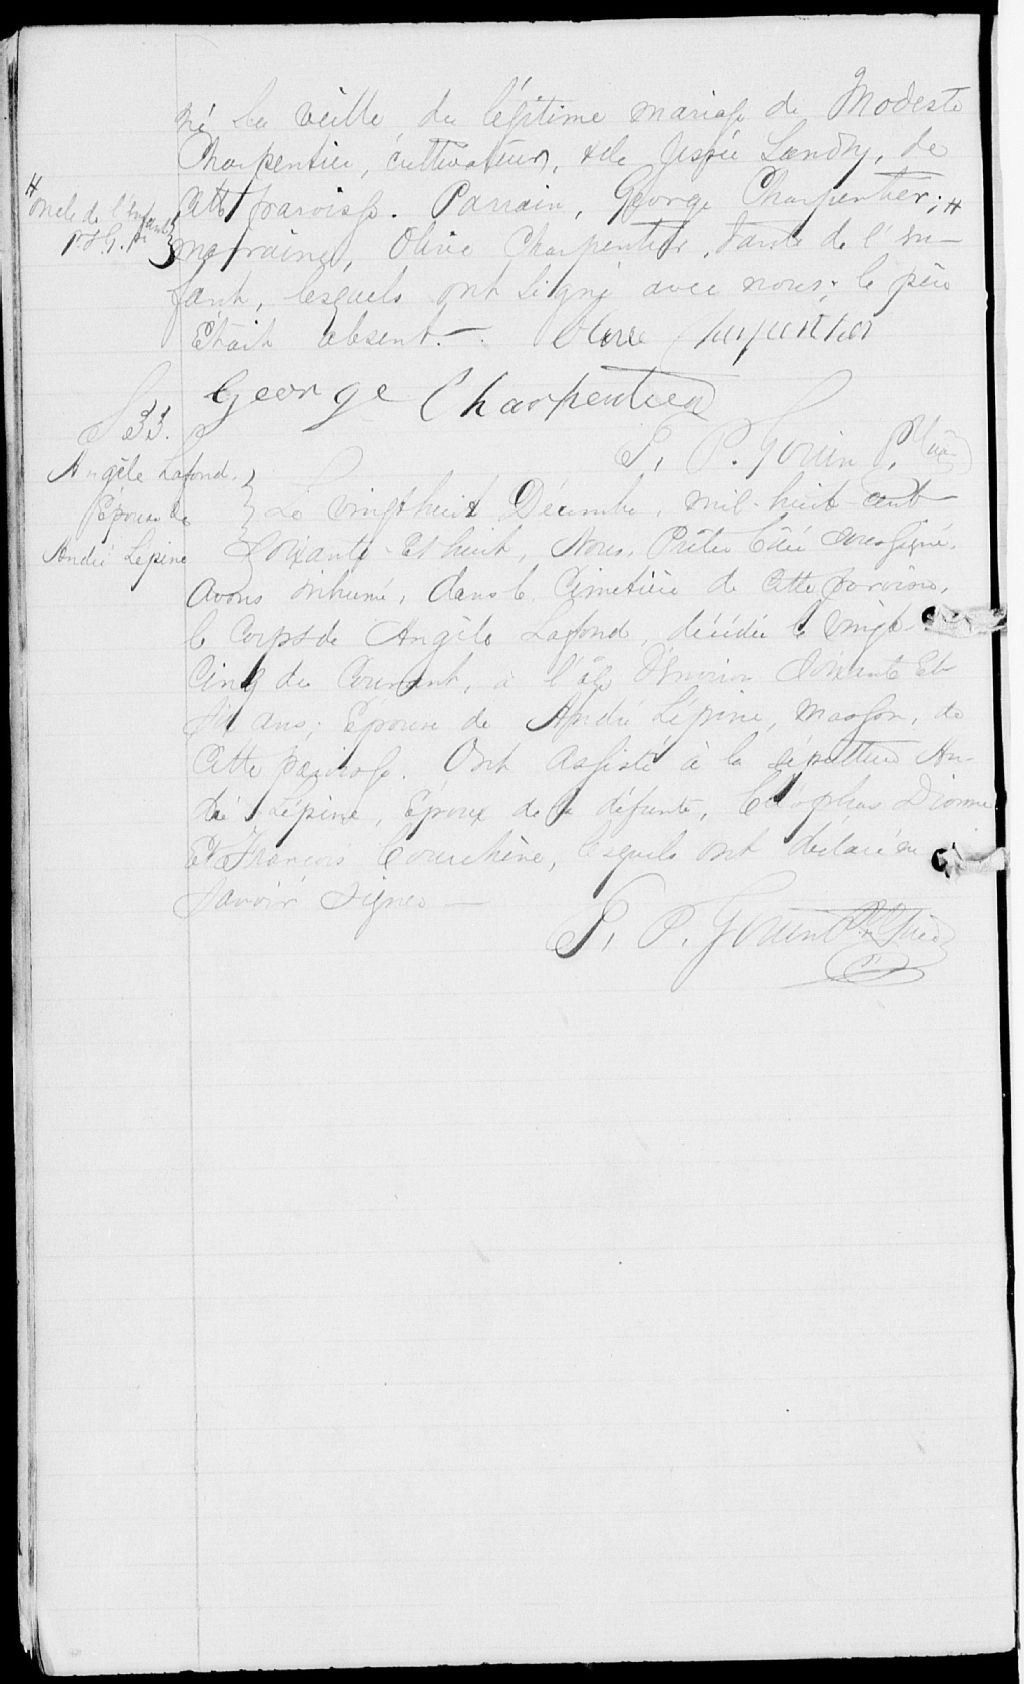 né la veille du légitime mariage de Modeste
Charpentier, cultivateur, & de Jessée Landry, de
cette paroisse. Parrain, George Charpentier; #
# oncle de l'enfant
marraine, Olive Charpentier, tante de l'en-
fant, lesquels ont signé avec nous; le père
était absent. — Olive Charpentier
George Charpentier
P. Gouin Ptre Curé
S 33.
Angèle Lafond.
Epouse de
André Lépine
Le vingt huit Décembre, mil-huit-cent-
soixante-et huit, Nous, Prêtre Curé soussigné,
avons inhumé, dans le cimetière de cette paroisse,
le corps de Angèle Lafond, décédée le vingt-
cinq du courant, à l'âge d'environ soixante et
dix ans; Epouse de André Lépine, masson, de
cette paroisse. Ont assisté à la sépulture An-
dré Lépine, époux de la défunte, Cléophas Dionne
et François Courchène, lesquels ont déclaré ne
savoir signer —
P. Gouin Ptre Curé